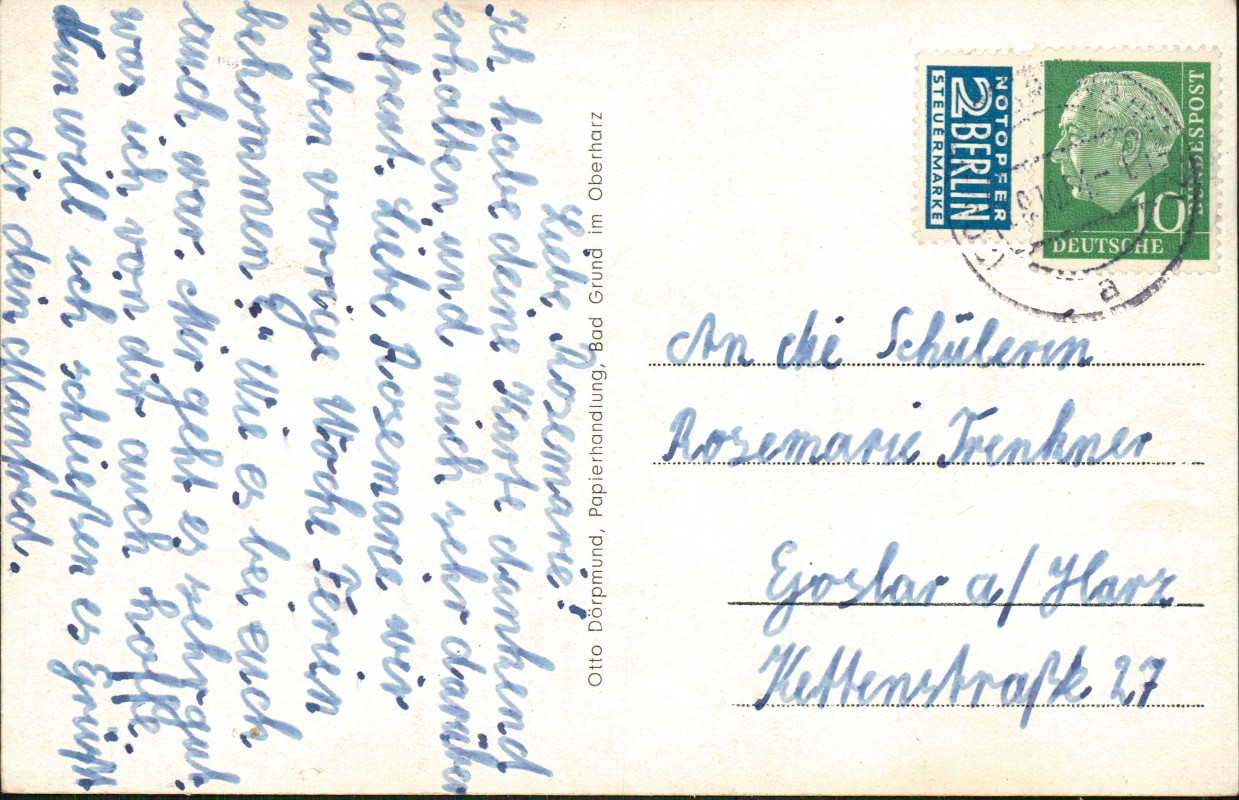 Liebe Rosemarie!
Ich habe deine Karte dankend
erhalten und mich sehr darüber
gefreut. Liebe Rosemarie wir
haben vorrige Woche Ferien
bekommen. Wie es bei euch
auch war. Mir geht es sehr gut
was ich von dir auch hoffe.
Nun will ich schließen es Grüßt
dir dein Manfred.
Otto Dörpmund, Papierhandlung, Bad Grund im Oberharz
NOTOPFER
2 BERLIN
STEUERMARKE
BUNDESPOST
10
DEUTSCHE
a
An die Schülerin
Rosemarie Trenkner
Goslar a/Harz
Kettenstraße 27